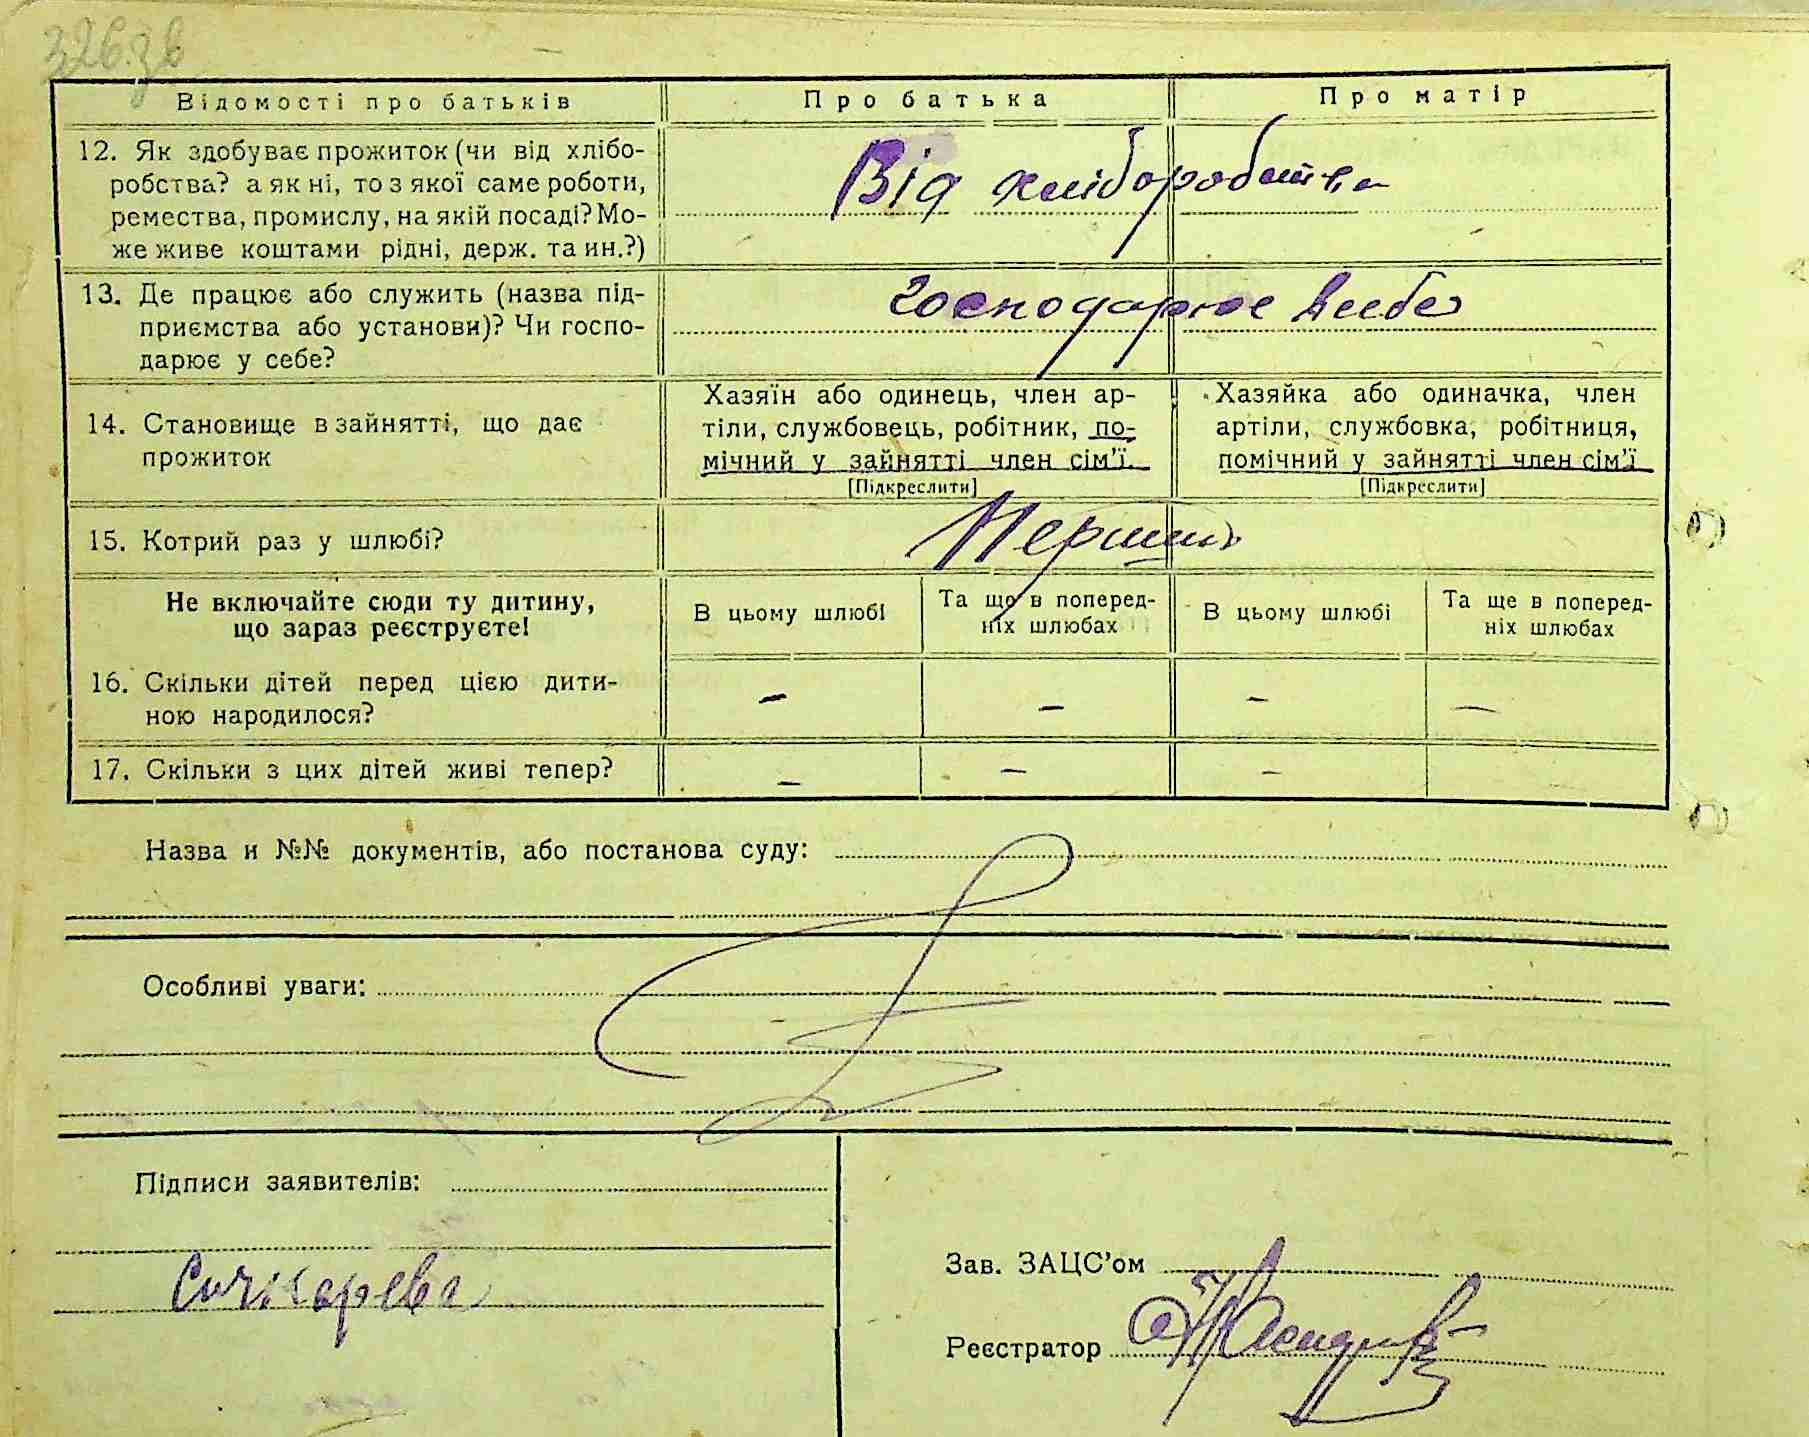 326.зв
Відомості про батьків Про батька Про матір
12. Як здобуває прожиток (чи від хлібо-
робства? а як ні, то з якої саме роботи,
ремества, промислу, на якій посаді? Мо-
же живе коштами рідні, держ. та ин.?)
Від хліборобства
13. Де працює або служить (назва під-
приємства або установи)? Чи госпо-
дарює у себе?
господарює в себе
14. Становище в зайнятті, що дає
прожиток
Хазяїн або одинець, член ар-
тіли, службовець, робітник, по-
мічний у зайнятті член сім'ї.
[Підкреслити]
Хазяйка або одиначка, член
артіли, службовка, робітниця,
помічний у зайнятті член сім'ї
[Підкреслити]
15. Котрий раз у шлюбі?
Перший
Не включайте сюди ту дитину,
що зараз реєструєте!
В цьому шлюбі
Та що в поперед-
ніх шлюбах
В цьому шлюбі
Та ще в поперед-
ніх шлюбах
16. Скільки дітей перед цією дити-
ною народилося?
– – – –
17. Скільки з цих дітей живі тепер?
– – –
Назва и №№ документів, або постанова суду:
Особливі уваги:
Підписи заявителів:
Зав. ЗАЦС'ом
Реєстратор